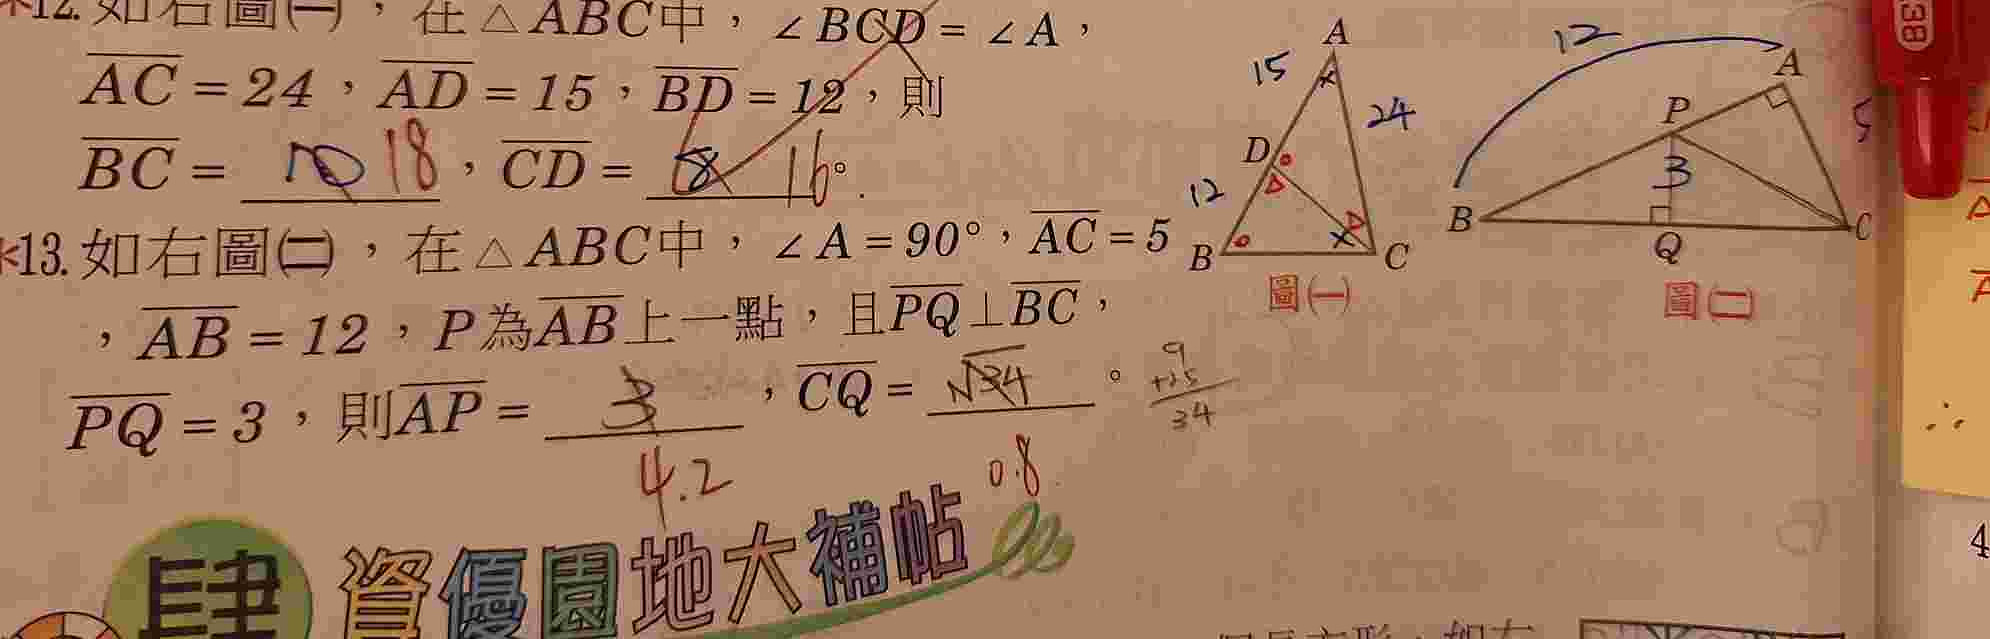 *12. 如右圖(一)，在△ABC中，∠BCD=∠A，
AC=24，AD=15，BD=12，則
BC= 18，CD= 8 16。
*13. 如右圖(二)，在△ABC中，∠A=90°，AC=5
，AB=12，P為AB上一點，且PQ⊥BC，
PQ=3，則AP= 3，CQ= √34。
4.2 0.8
9
+25
34
A
15
24
D
12
B C
圖(一)
12
A
P
5
3
B C
Q
圖(二)
肆 資優園地大補帖
38
4
∴